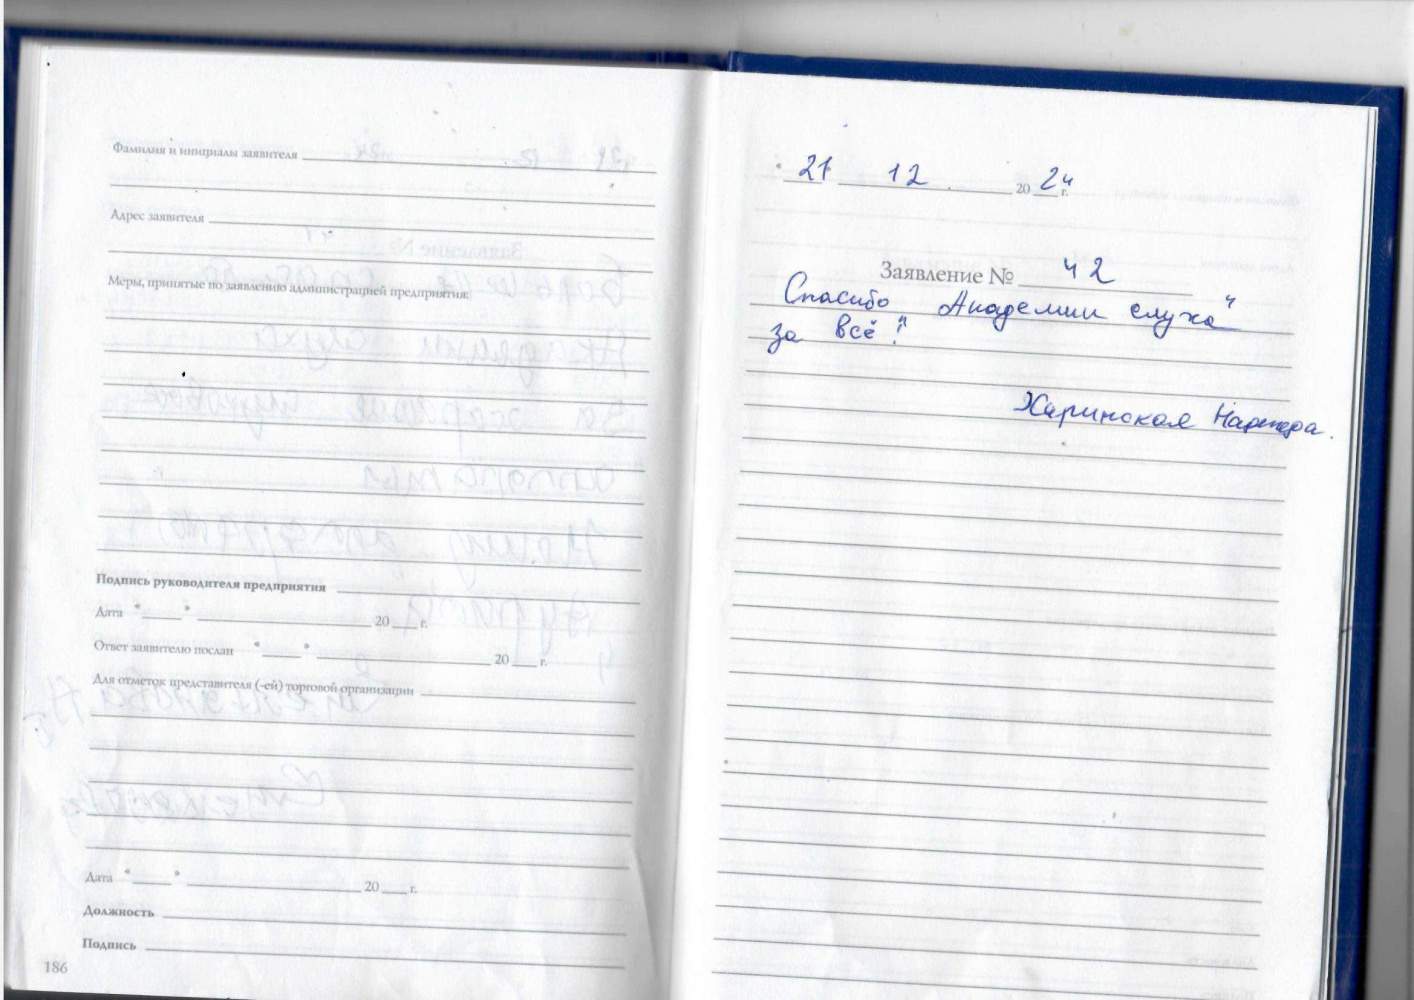 Фамилия и инициалы заявителя
Адрес заявителя
Меры, принятые по заявлению администрацией предприятия:
Подпись руководителя предприятия
Дата " " 20 г.
Ответ заявителю послан " " 20 г.
Для отметок представителя (-ей) торговой организации
Дата " " 20 г.
Должность
Подпись
186
21 12 20 24 г.
Заявление № 42
Спасибо Академии слуха"
за всё!"
Харинская